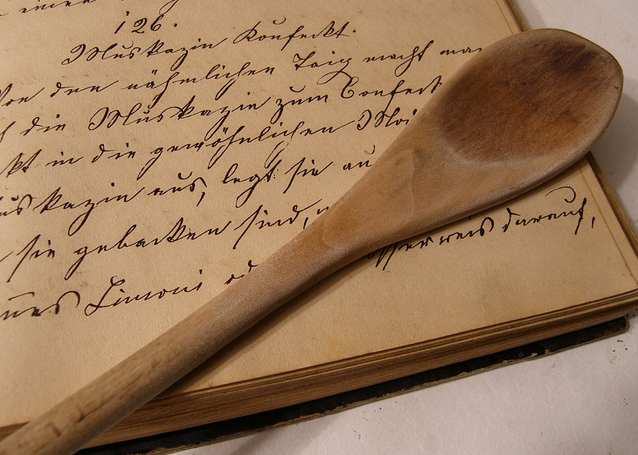 126.
Muskazin Konfeckt.
Von den nähmlichen Taig macht man
die Muskazin zum Confeckt
in die gewöhnlichen
Muskazin aus, legt sie au
sie gebacken sind,
Limoni od weis darauf,